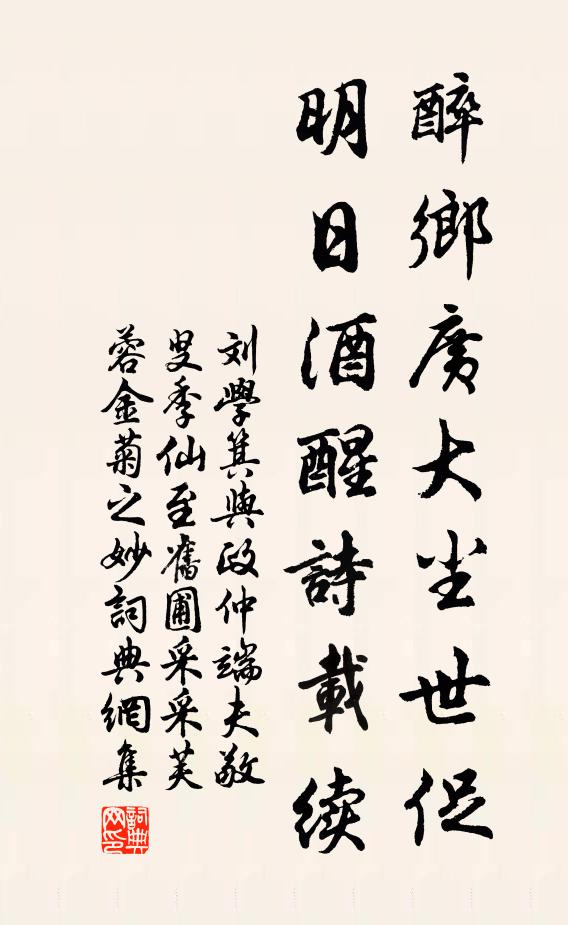 醉鄉廣大尘世促
明日酒醒詩載续
刘學箕與政仲端夫敬
叟季仙至舊圃采采芙
蓉金菊之妙詞典網集
詞典
网印